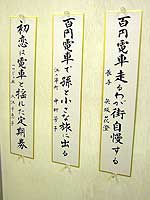 百円電車走るわが街自慢する
百円電車で孫と小さな旅に出る
初恋は電車と揺れた定期券